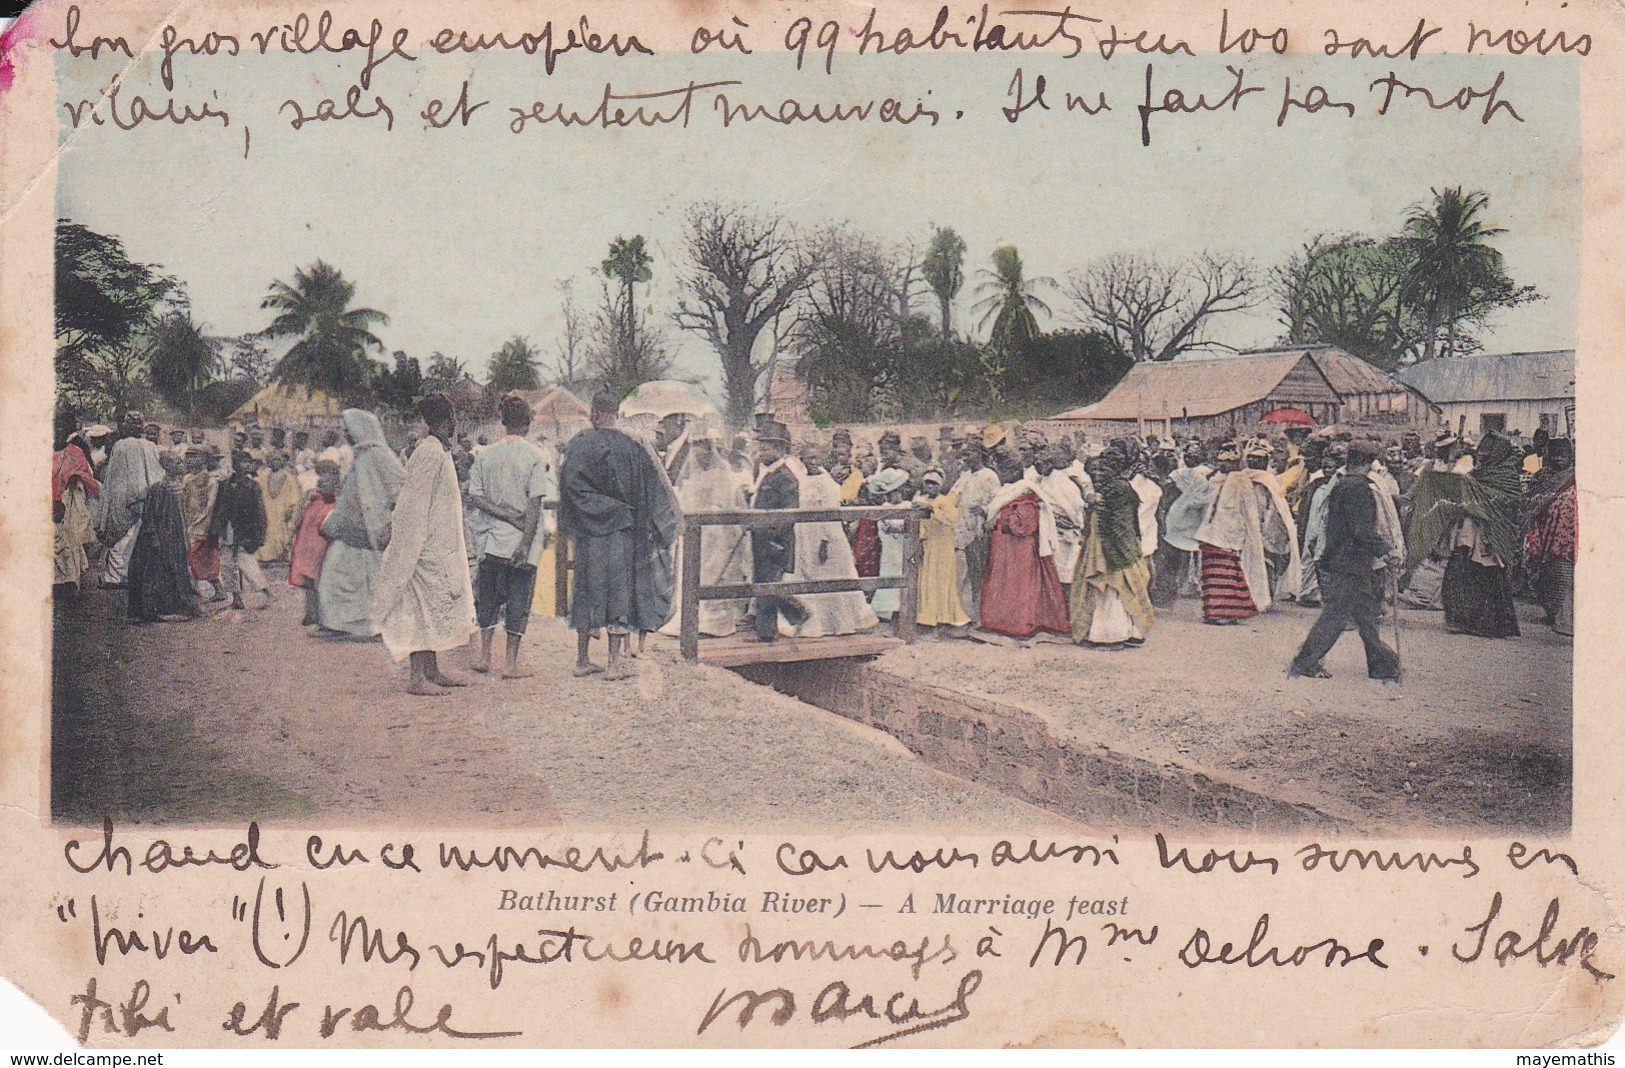 bon gros village européen où 99 habitants sur 100 sont noirs
vilains, sales et sentent mauvais. Il ne fait pas trop
chaud en ce moment-ci car nous aussi nous sommes en
Bathurst (Gambia River) — A Marriage feast
"hiver" (!) Mes respectueux hommages à Mme Dehosse. Salve
tibi et vale Marcel
www.delcampe.net
mayemathis